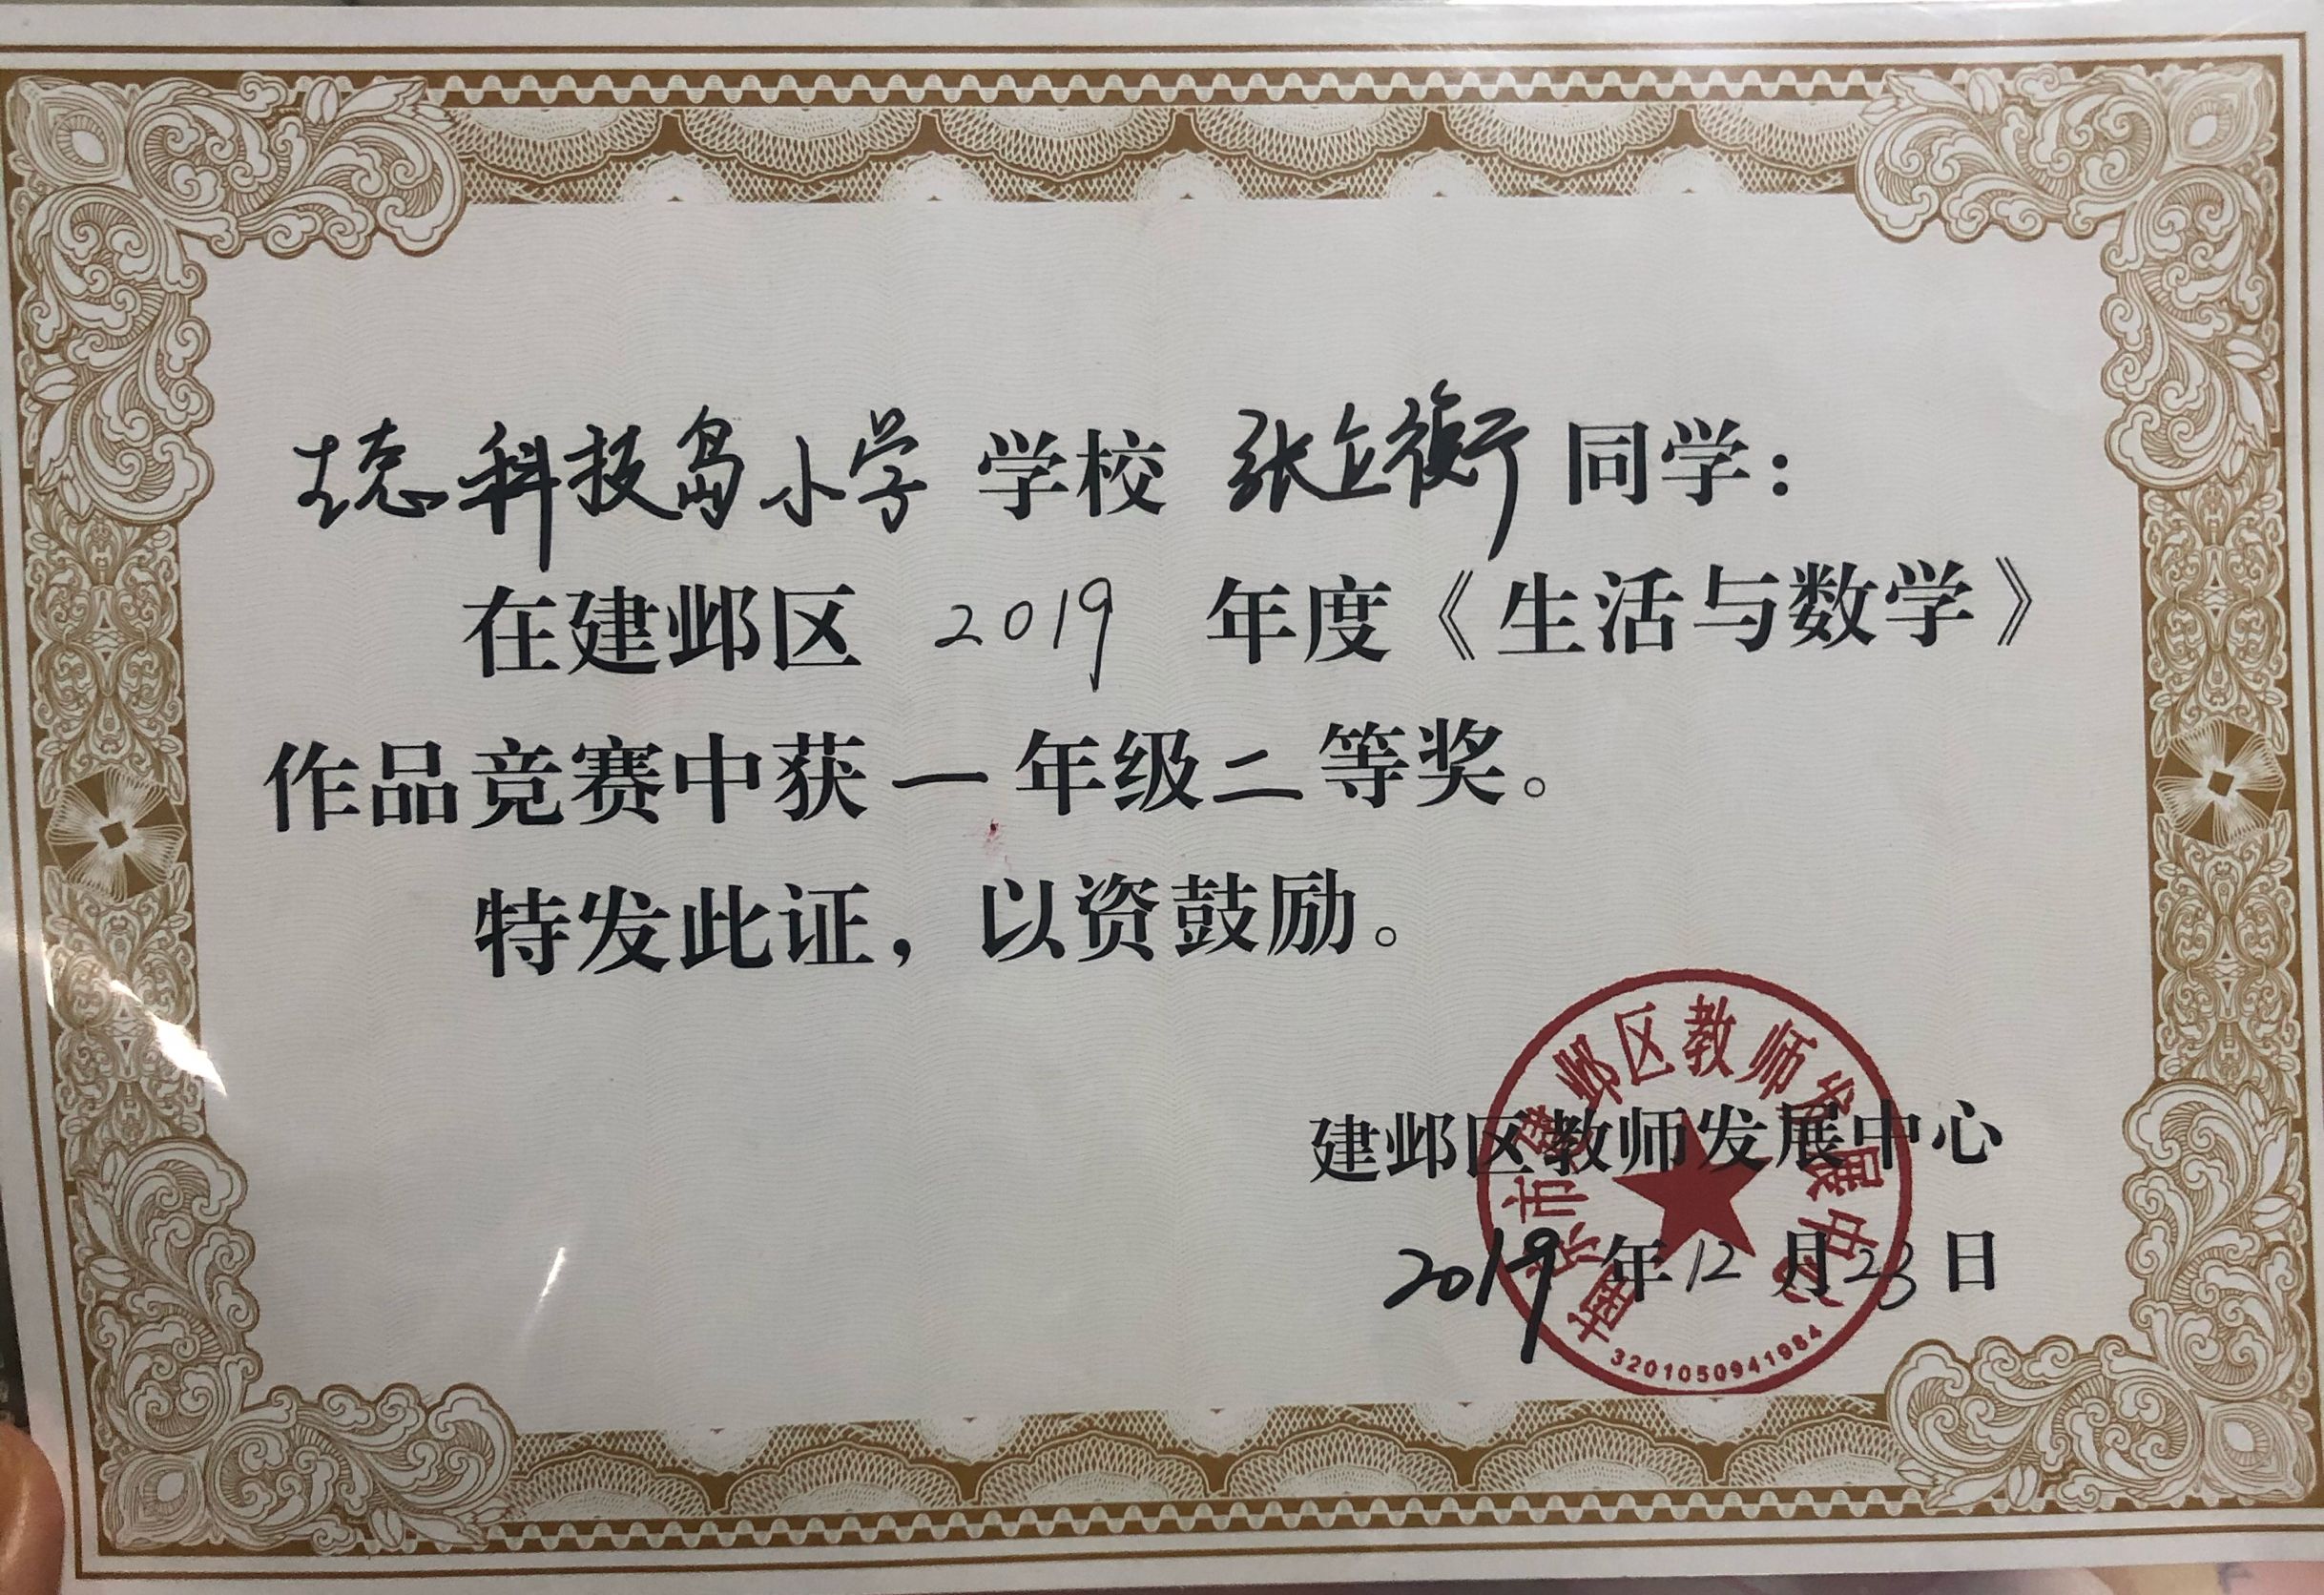 生态科技岛小学 学校 张立衡 同学：
在建邺区 2019 年度《生活与数学》
作品竞赛中获一年级二等奖。
特发此证，以资鼓励。
建邺区教师发展中心
2019年12月23日
南京市建邺区教师发展中心
3201050941984